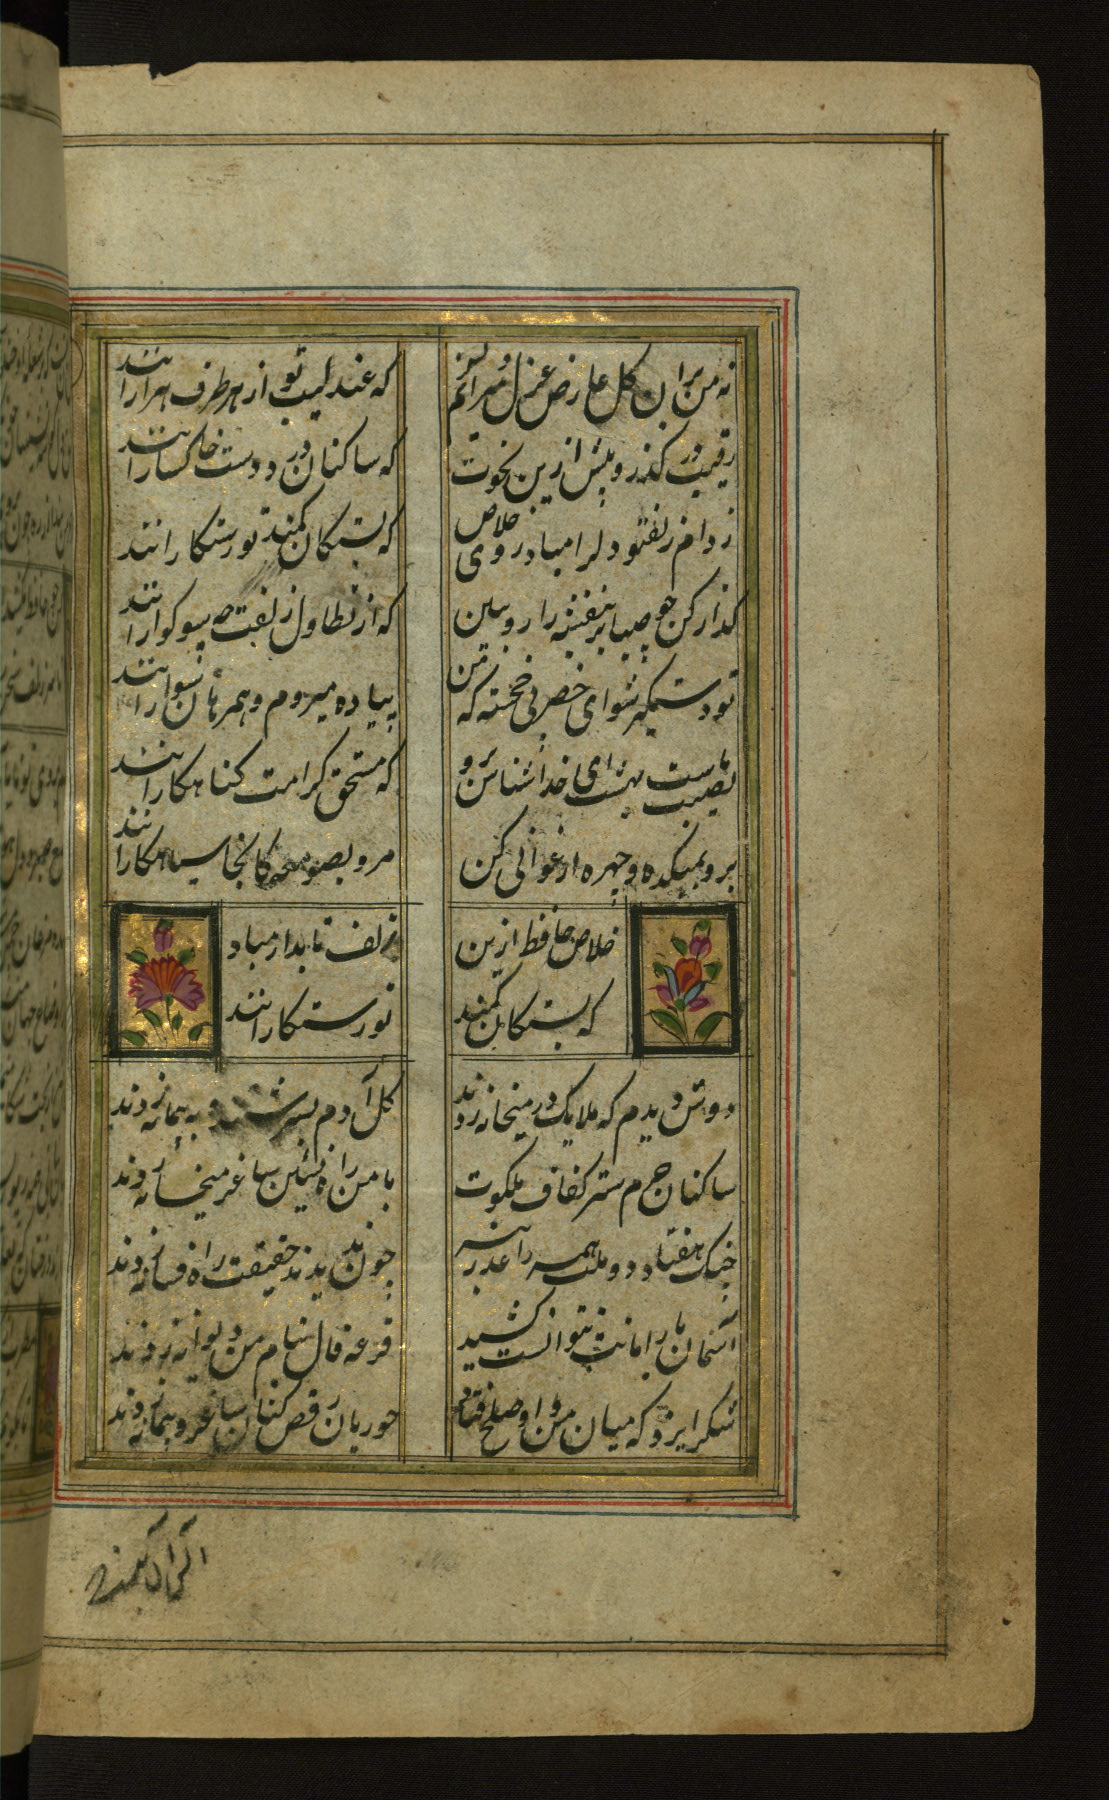 نه من بران گل عارض غزل سرایم و بس
که عندلیب تو از هر طرف هزارانند
رقیب در گذر و پیش ازین نخوت
که ساکنان در دوست خاکسارانند
ز دام زلف تو دلرا مباد روی خلاص
که بستکان کمند تو رستکارانند
کذار کن چو صبا بر بنفشه زار و ببین
که از تطاول زلفت چه سوکوارانند
تو دستکیر شو ای خضر پی خجسته که من
پیاده میروم و همرهان سوارانند
نصیب ماست بهشت ای خداشناس برو
که مستحق کرامت کناهکارانند
برو بمیکده و چهره ارغوانی کن
مرو بصومعه کانجا سیاهکارانند
خلاص حافظ ازین
زلف تابدار مباد
که بستکان کمند
تو رستکارانند
دوش دیدم که ملایک در میخانه زدند
کل آدم بسرشتند و به پیمانه زدند
ساکنان حرم ستر عفاف ملکوت
با من راه نشین ساغر میخانه زدند
جنک هفتاد و دو ملت همه را عذر بنه
چون ندیدند حقیقت ره افسانه زدند
آسمان بار امانت نتوانست کشید
قرعه فال بنام من دیوانه زدند
شکر ایزد که میان من و او صلح فتاد
حوریان رقص کنان ساغر و پیمانه زدند